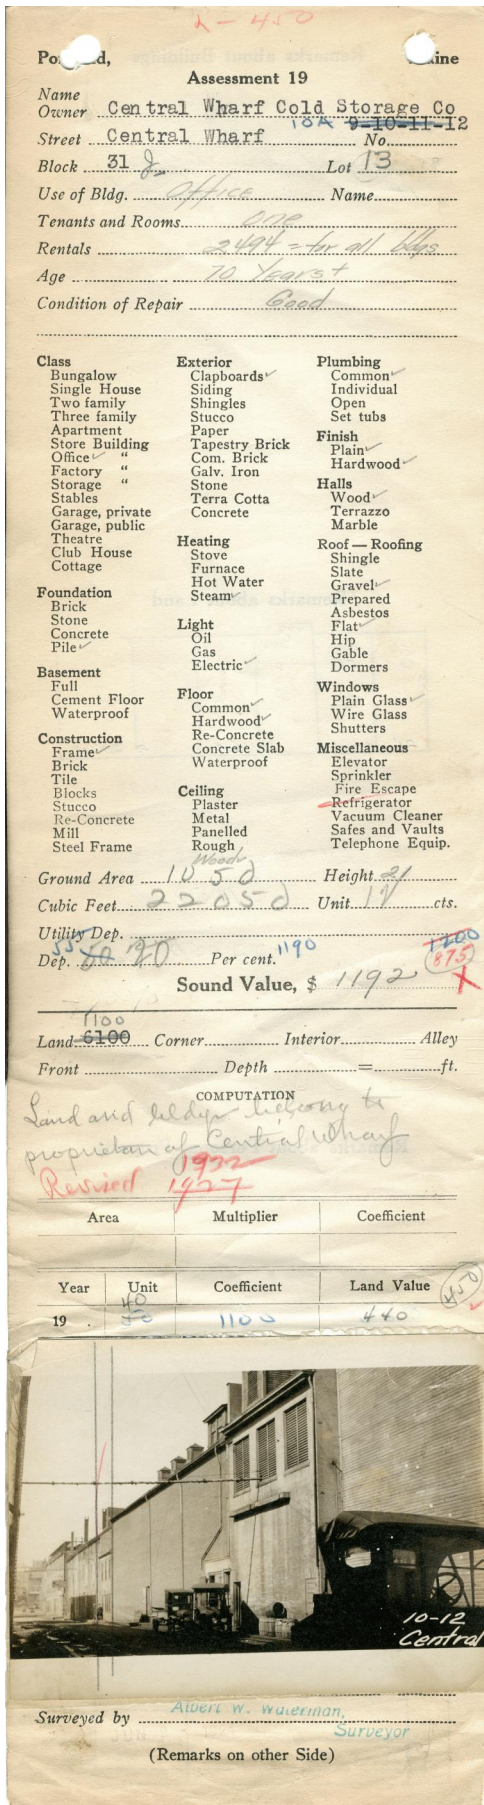 L-450
Po nd, aine
Assessment 19
Name
Owner Central Wharf Cold Storage Co
10A 9-10-11-12
Street Central Wharf No.
Block 31 Lot 13
Use of Bldg. Office Name
Tenants and Rooms one
Rentals 2494 = for all bldgs
Age 70 Years +
Condition of Repair Good
Class
Bungalow
Single House
Two family
Three family
Apartment
Store Building
Office ✓ "
Factory "
Storage "
Stables
Garage, private
Garage, public
Theatre
Club House
Cottage
Foundation
Brick
Stone
Concrete
Pile ✓
Basement
Full
Cement Floor
Waterproof
Construction
Frame ✓
Brick
Tile
Blocks
Stucco
Re-Concrete
Mill
Steel Frame
Exterior
Clapboards ✓
Siding
Shingles
Stucco
Paper
Tapestry Brick
Com. Brick
Galv. Iron
Stone
Terra Cotta
Concrete
Heating
Stove
Furnace
Hot Water
Steam ✓
Light
Oil
Gas
Electric ✓
Floor
Common ✓
Hardwood ✓
Re-Concrete
Concrete Slab
Waterproof
Ceiling
Plaster
Metal
Panelled
Rough
Wood
Plumbing
Common ✓
Individual
Open
Set tubs
Finish
Plain ✓
Hardwood ✓
Halls
Wood ✓
Terrazzo
Marble
Roof — Roofing
Shingle
Slate
Gravel ✓
Prepared
Asbestos
Flat ✓
Hip
Gable
Dormers
Windows
Plain Glass ✓
Wire Glass
Shutters
Miscellaneous
Elevator
Sprinkler
Fire Escape
Refrigerator
Vacuum Cleaner
Safes and Vaults
Telephone Equip.
Ground Area 1050 Height 21
Cubic Feet 22050 Unit 17 cts.
Utility Dep.
55 1200
Dep. 60 Per cent. 1190 875
Sound Value, $ 1192 X
1100
Land 6100 Corner Interior Alley
Front Depth = ft.
COMPUTATION
Land and bldgs belong to
proprietors of Central Wharf
1932
Revised 1927
Area Multiplier Coefficient
Year Unit Coefficient Land Value 450
40
19 . 50 1100 440
10-12
Central
Surveyed by Albert W. Waterman,
Surveyor
(Remarks on other Side)